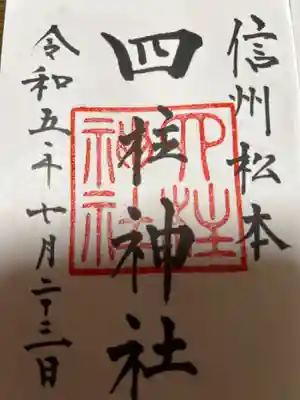 信州松本
四柱神社
四柱神社
令和五年七月二十三日